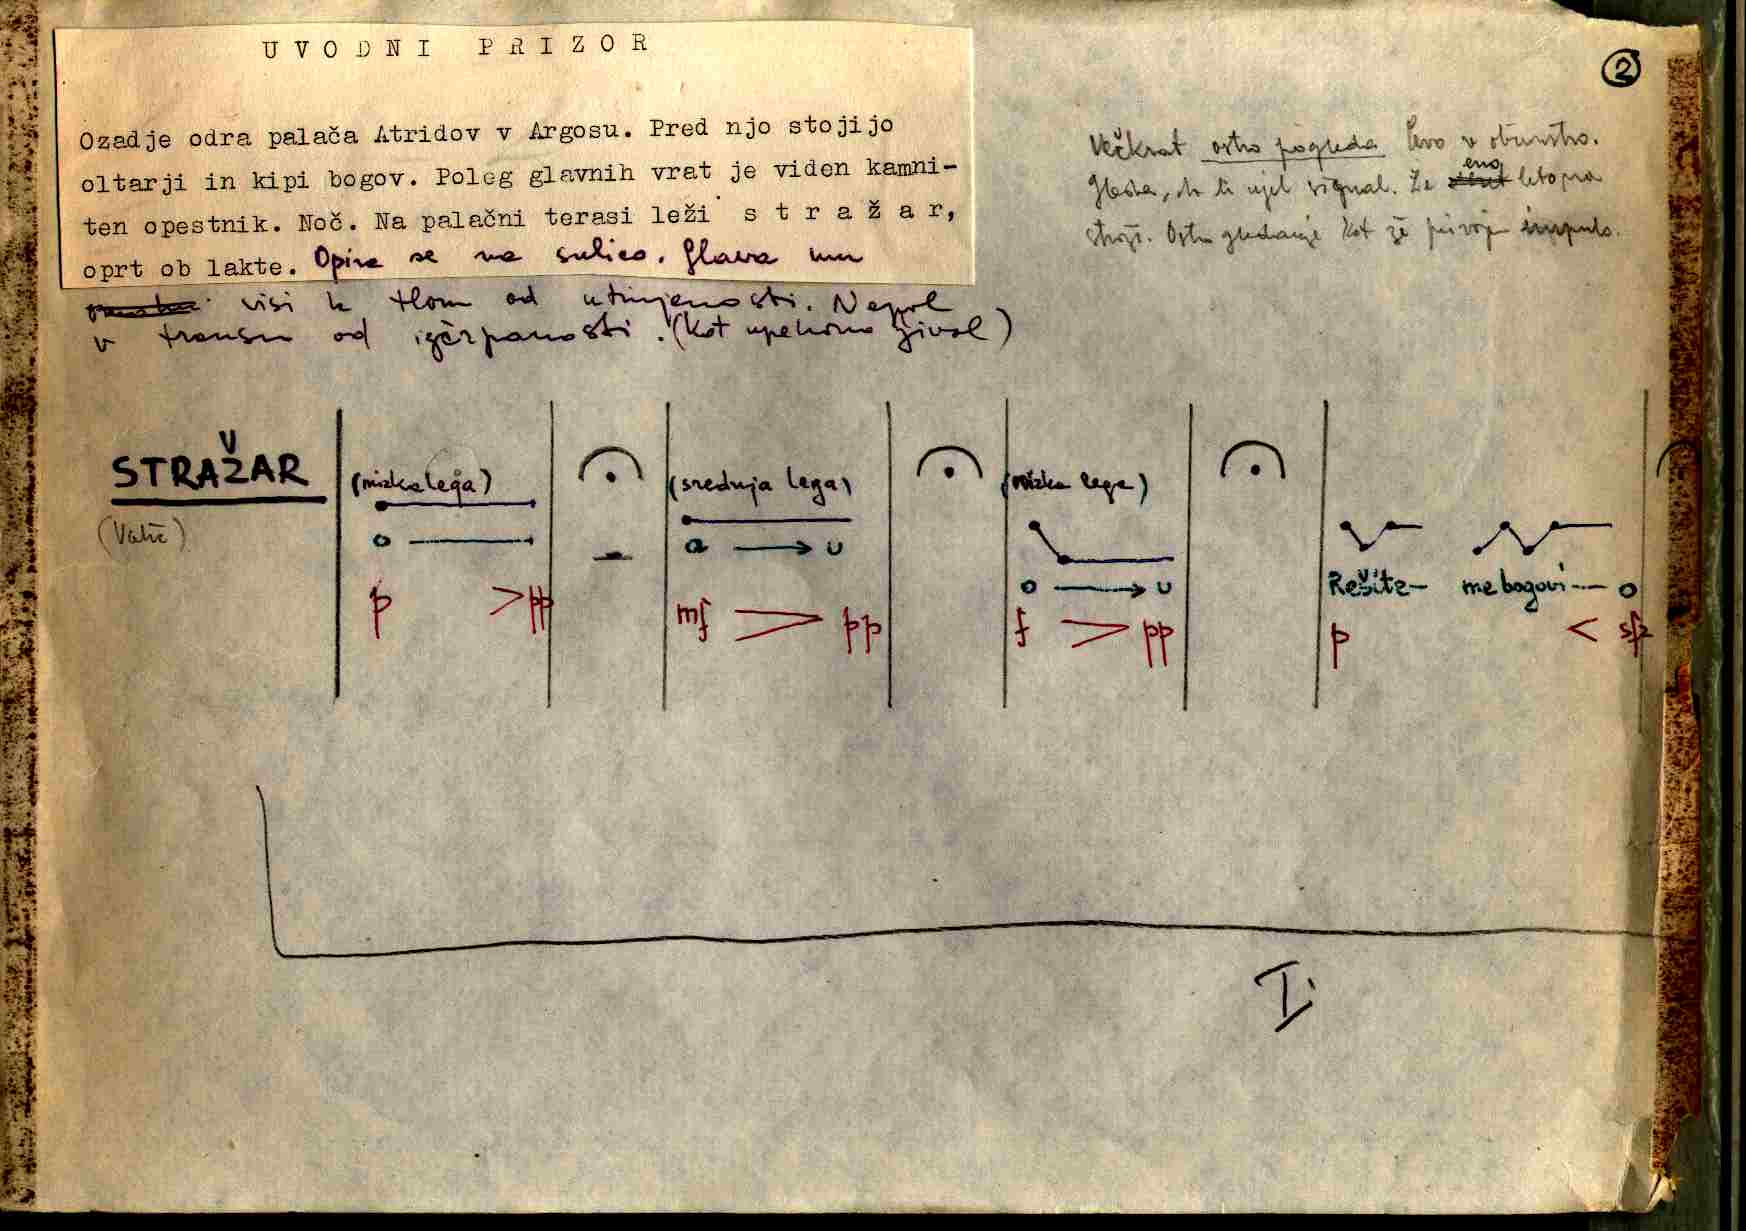 UVODNI PRIZOR
2
Ozadje odra palača Atridov v Argosu. Pred njo stojijo
oltarji in kipi bogov. Poleg glavnih vrat je viden kamni-
ten opestnik. Noč. Na palačni terasi leži stražar,
oprt ob lakte. Opira se na sulico. Glava mu
visi k tlom od utrujenosti. Napol
v transu od izčrpanosti. (Kot upehana žival)
Večkrat ostro pogleda levo v
da bi ujel signal. Že eno leto na
straži. Ostro gledanje kot že
STRAŽAR
(nizka lega)
(srednja lega)
(nizka lega)
o
a u
o u
Rešite- me bogovi o
p >pp
mf pp
f pp
p < sfz
I.